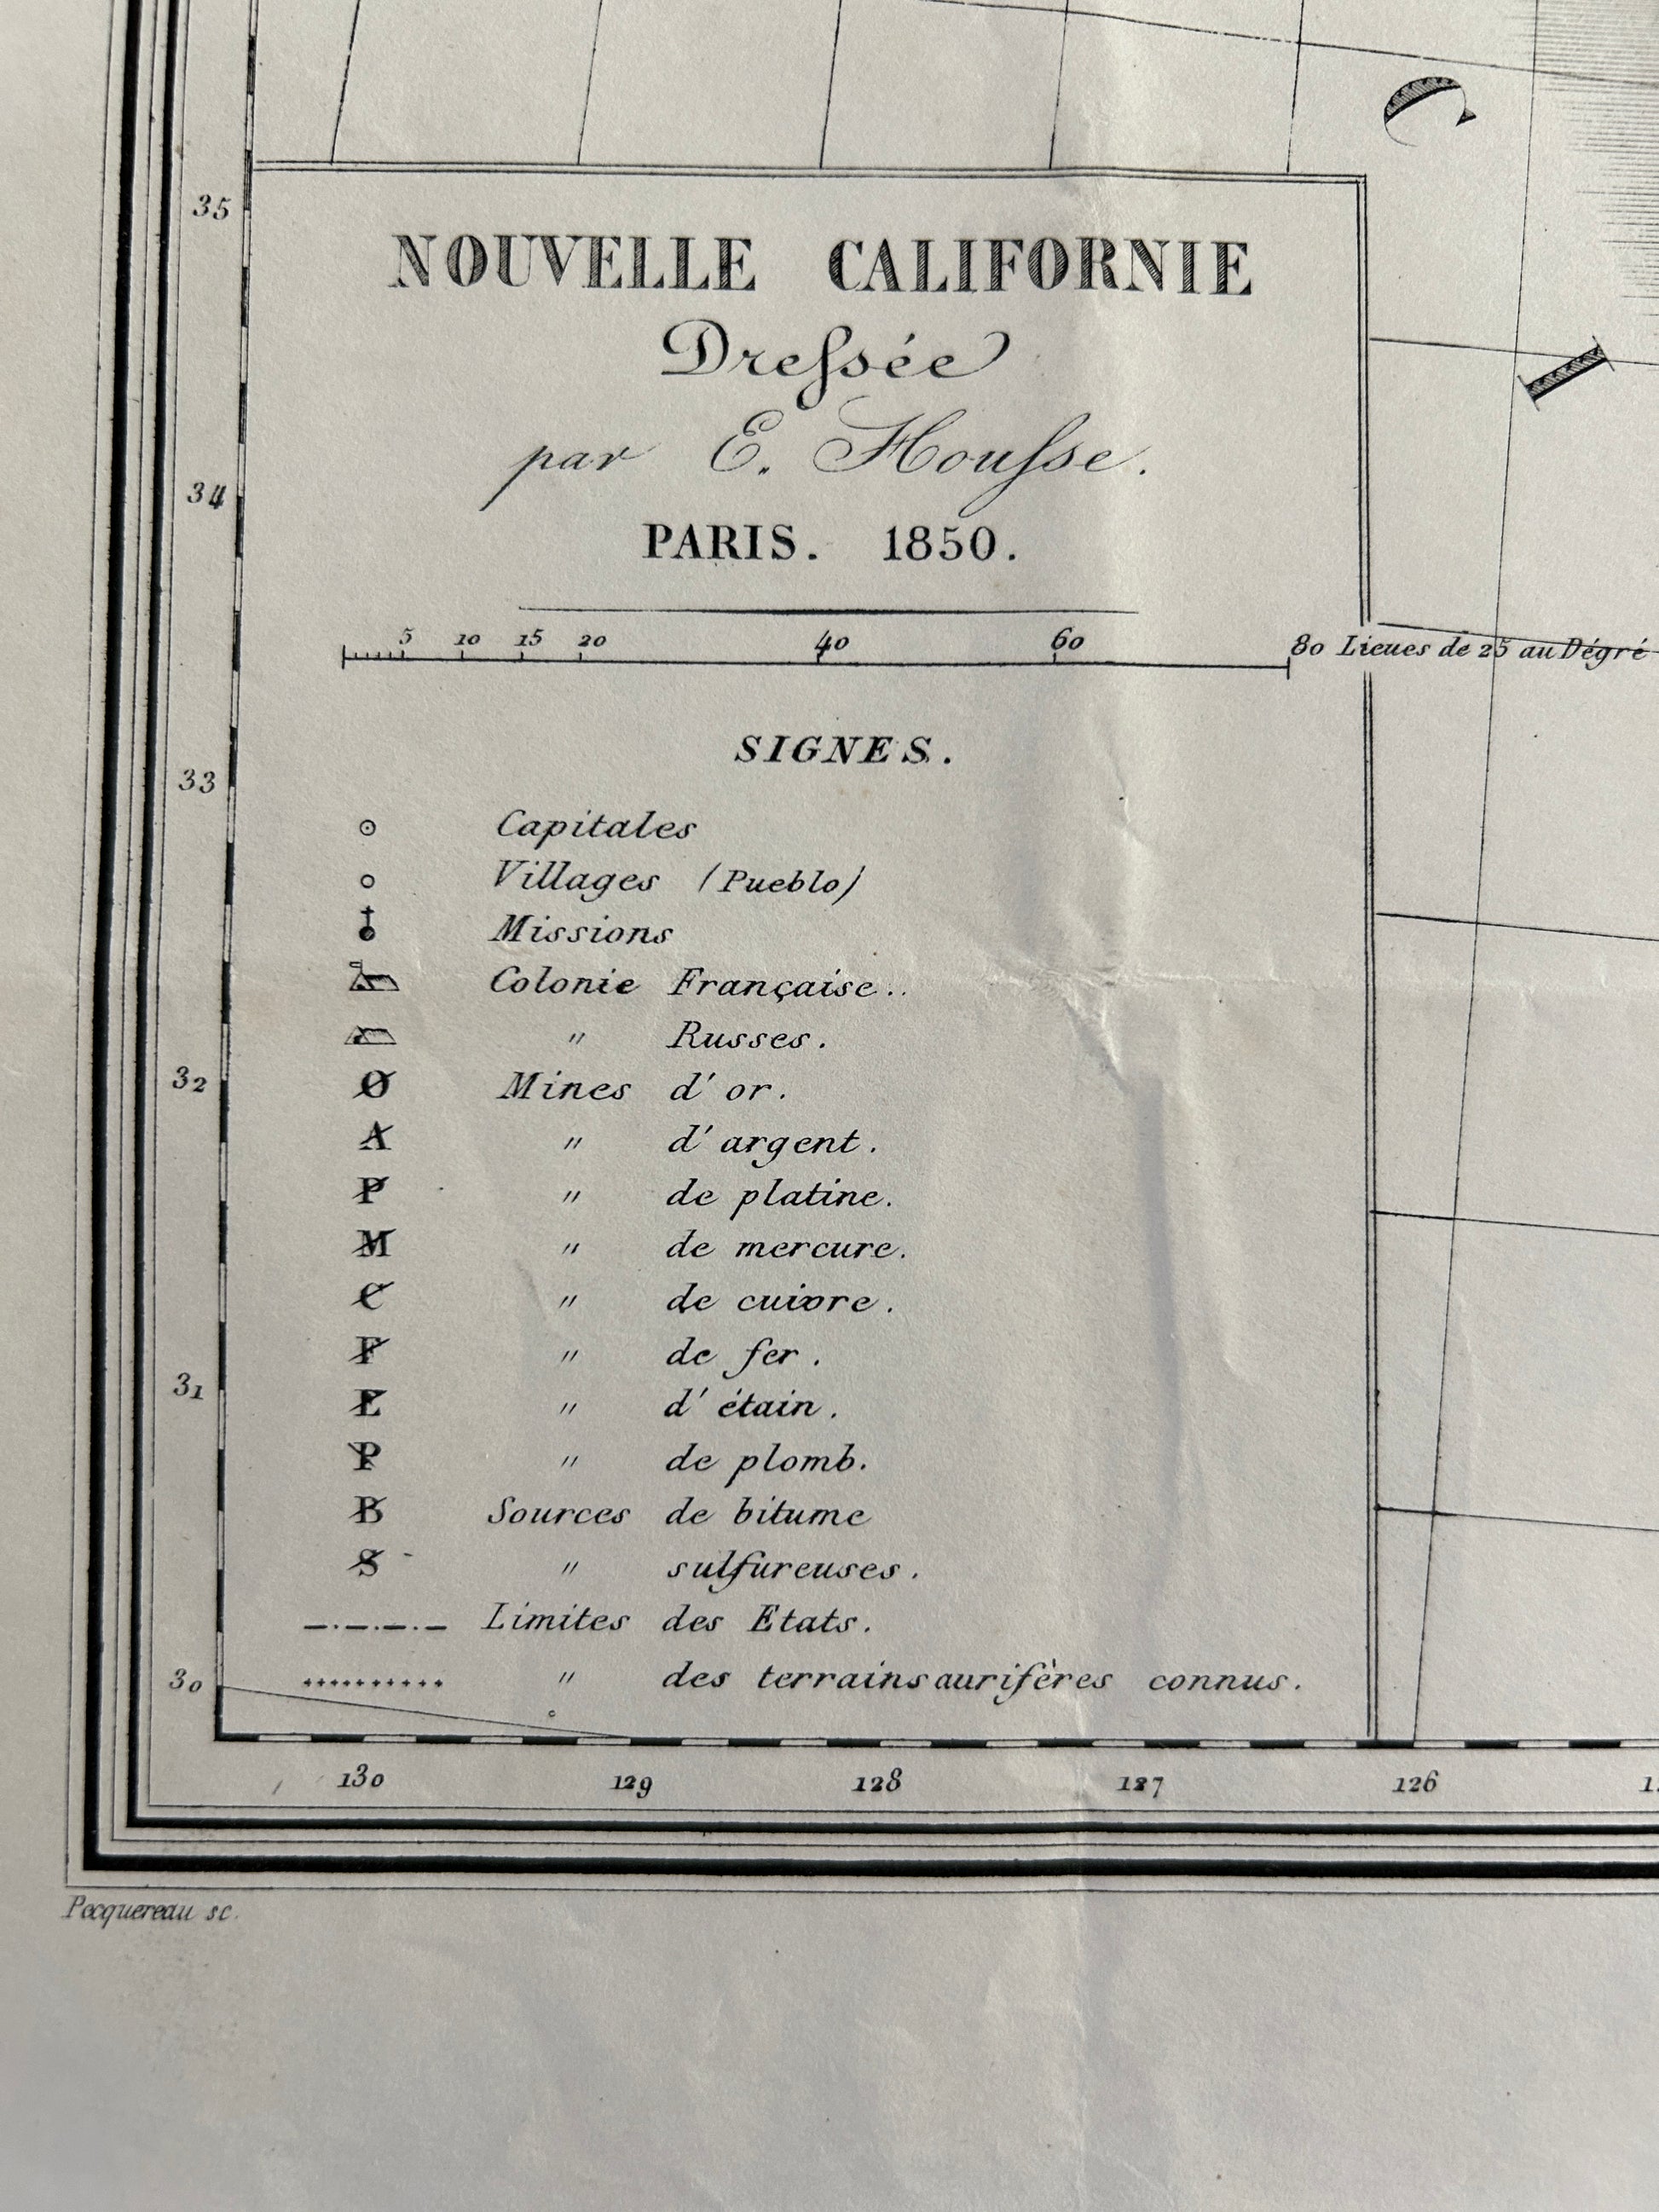 C
I
35
NOUVELLE CALIFORNIE
Dreſsée
par E. Houſse.
34
PARIS. 1850.
5 10 15 20 40 60 80 Lieues de 25 au Dégré
SIGNES.
33
Capitales
Villages (Pueblo)
Missions
Colonie Française..
" Russes.
32
O Mines d'or.
A " d'argent.
P " de platine.
M " de mercure.
C " de cuivre.
F " de fer.
31
E " d'étain.
P " de plomb.
B Sources de bitume
S " sulfureuses.
Limites des Etats.
30
" des terrains aurifères connus.
130 129 128 127 126
Pecquereau sc.